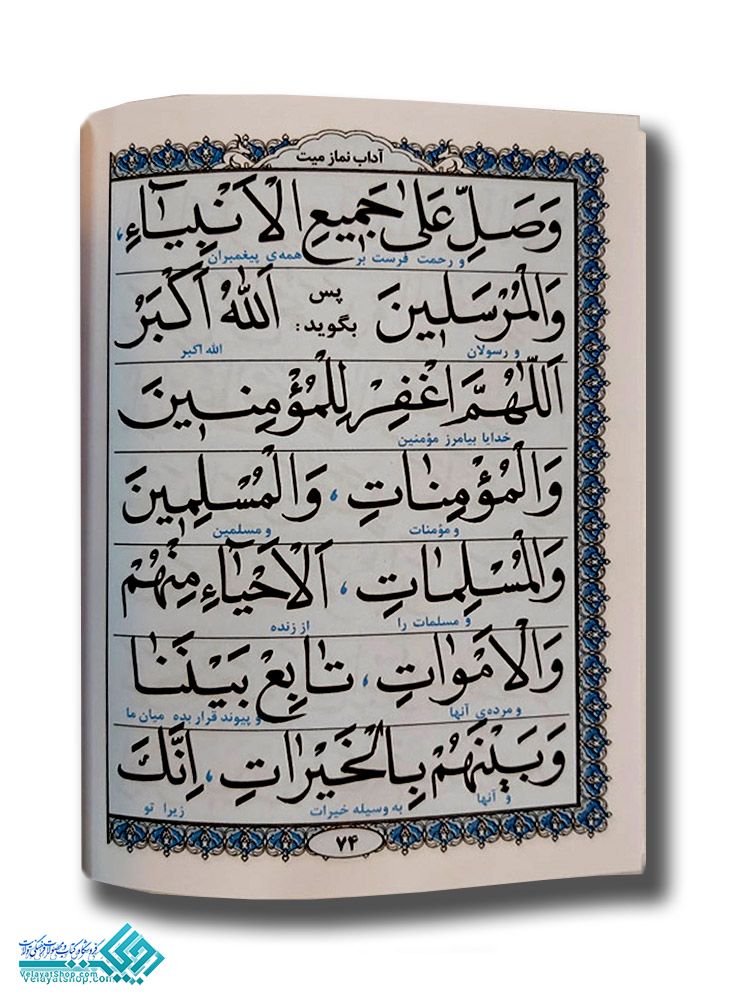 آداب نماز میت
وَصَلِّ عَلىٰ جَمیعِ الْاَنْبِیٰٓاءِ،
و رحمت فرست بر همه‌ی پیغمبران
وَالْمُرْسَلینَ پس بگوید: اَللّٰهُ اَکْبَرُ
و رسولان الله اکبر
اَللّٰهُمَّ اغْفِرْ لِلْمُؤْمِنینَ
خدایا بیامرز مؤمنین
وَالْمُؤْمِنٰاتِ، وَالْمُسْلِمینَ
و مؤمنات و مسلمین
وَالْمُسْلِمٰاتِ، اَلْاَحْیٰٓاءِ مِنْهُمْ
و مسلمات را از زنده
وَالْاَمْوٰاتِ، تٰابِعْ بَیْنَنٰا
و مرده‌ی آنها و پیوند قرار بده میان ما
وَبَیْنَهُمْ بِالْخَیْرٰاتِ، اِنَّکَ
و آنها به وسیله خیرات زیرا تو
۷۴
فروشگاه کتاب و محصولات فرهنگی ولایت
VelayatShop.com